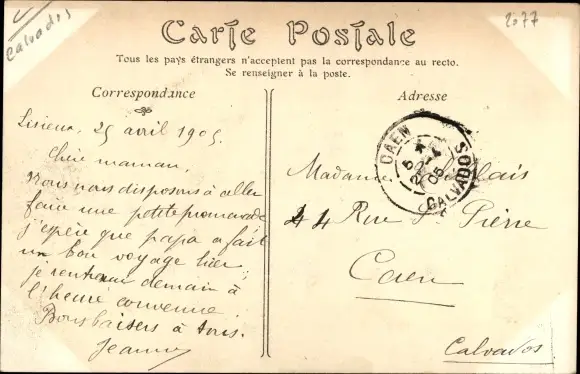 Calvados
2077
Carte Postale
Tous les pays étrangers n'acceptent pas la correspondance au recto.
Se renseigner à la poste.
Correspondance
Lisieux, 25 avril 1905
Chère maman,
Nous nous disposons à aller
faire une petite promenade
j'espère que papa a fait
un bon voyage hier
je rentrerai demain à
l'heure convenue.
Bons baisers à tous.
Jeanne
Adresse
CAEN
CALVADOS
05
Madame
44 Rue St Pierre
Caen
Calvados